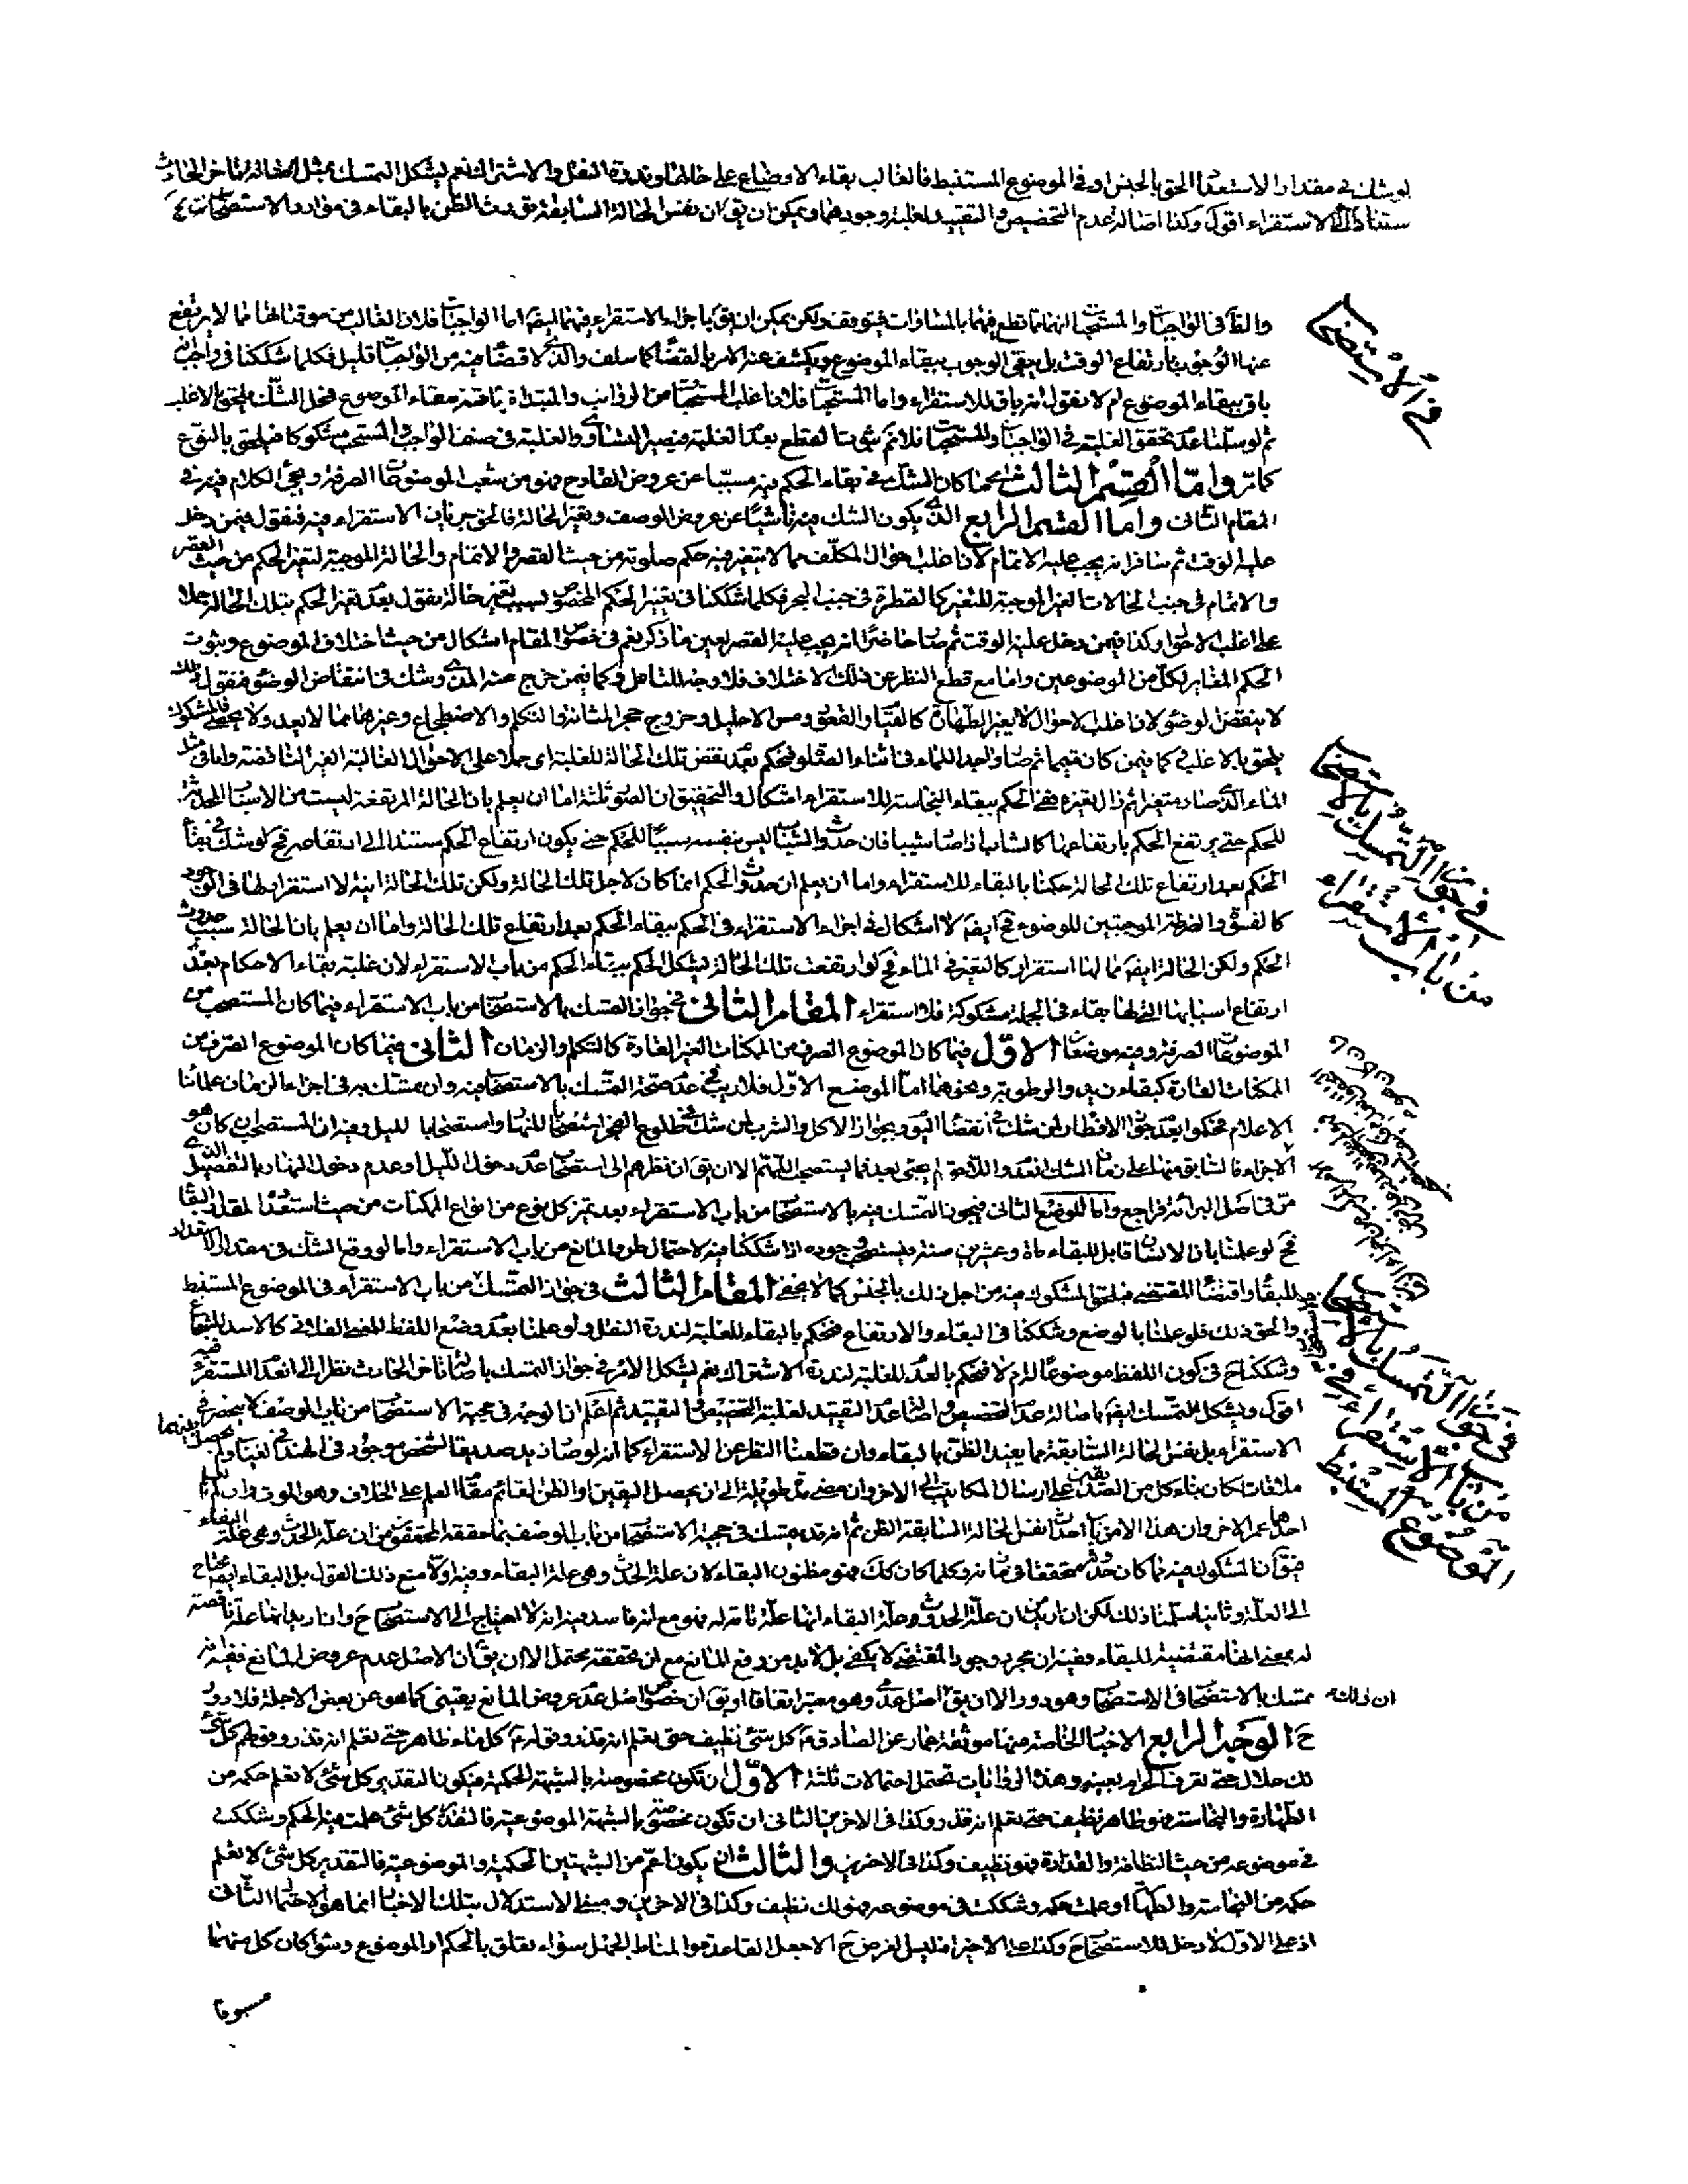 لو شك في مقدار الاستعداد الحق بالجنس او في الموضوع المستنبط فالغالب بقاء الاوضاع على حالها وندرة النقل والاشتراك نعم يشكل التمسك بمثل اصالة تاخر الحادث
الاستقراء اقول وكذا اصالة عدم التخصيص والتقييد لغلبة وجودهما ويمكن ان يق ان نفس الحالة السابقة تورث الظن بالبقاء في موارد الاستصحاب
في الاستصحاب
في الواجبات والمستحبات فيتوقف ولكن يمكن ان يق باجراء الاستقراء فيهما ايضا اما الواجبات فلان الغالب من موقتاتها مما لا يرتفع
عنها الوجوب بارتفاع الوقت بل يبقى الوجوب ببقاء الموضوع ويكشف عنه الامر بالقضاء كما سلف والذي لا قضاء فيه من الواجبات قليل فكلما شككنا في واجب انه
باق ببقاء الموضوع ام لا نقول انه باق للاستقراء واما المستحبات فلان اغلب المستحبات من الرواتب والمبتداة باقية ببقاء الموضوع فمحل الشك ملحق بالاغلب
ثم لو سلمنا عدم تحقق الغلبة في الواجبات والمستحبات فلا تم ثبوت القطع بعدم الغلبة
كما مر واما القسم الثالث مما كان الشك في بقاء الحكم فيه مسببا عن عروض القادح فهو من شعب الموضوعات الصرفة ويجئ الكلام فيه في
المقام الثاني واما القسم الرابع الذي يكون الشك فيه ناشيا عن عروض الوصف وتغير الحالة فالحق جريان الاستقراء فيه فنقول فيمن دخل
عليه الوقت ثم سافر انه يجب عليه الاتمام لان اغلب احوال المكلف مما لا يتغير فيه حكم صلوته من حيث القصر والاتمام والحالة الموجبة لتغير الحكم من حيث القصر
والاتمام في جنب الحالات الغير الموجبة للتغير كالقطرة في جنب البحر فكلما شككنا في تغير الحكم بسبب تغير حالة نقول بعدم تغير الحكم بتلك الحالة حملا
على اغلب الاحوال وكذا فيمن دخل عليه الوقت ثم صار حاضرا انه يجب عليه القصر بعين ما ذكر نعم في خصوص المقام اشكال من حيث اختلاف الموضوع وثبوت
الحكم المغاير لكل من الموضوعين واما مع قطع النظر عن ذلك الاختلاف فلا وجه للتامل وكما فيمن خرج عنه المذي وشك في انتقاض الوضوء فنقول
لا ينتقض الوضوء لان اغلب الاحوال لا يغير الطهارة كالقيام والقعود ومس الاحليل وخروج حجر المثانة والتكلم والاضطجاع وغيرها مما لا يعد ولا يحصى فالمشكوك
يلحق بالاغلب كما فيمن كان متيمما ثم صار واجدا للماء في اثناء الصلوة فيحكم بعدم نقض تلك الحالة للغلبة اي حملا على الاحوال الغالبة الغير الناقضة واما في مثل
الماء الذي صار متغيرا ثم زال تغيره ففي الحكم ببقاء النجاسة للاستقراء اشكال والتحقيق ان الصور ثلثة اما ان يعلم بان الحالة المرتفعة ليست من الاسباب المحدثة
للحكم حتى يرتفع الحكم بارتفاعها كالشاب اذا صار شيبا فان حدوث الشيب ليس بنفسه سببا للحكم حتى يكون ارتفاع الحكم مستندا الى ارتفاعه فح لو شك في بقاء
الحكم بعد ارتفاع تلك الحالة حكمنا بالبقاء للاستقراء واما ان يعلم ان حدوث الحكم انما كان لاجل تلك الحالة ولكن تلك الحالة انية لا استقرار لها في الوجود
كالفسق والضرطة الموجبتين للوضوء فح ايضا لا اشكال في اجراء الاستقراء في الحكم ببقاء الحكم بعد ارتفاع تلك الحالة واما ان يعلم بان الحالة سبب حدوث
الحكم ولكن الحالة ايضا مما لها استقرار كالتغير في الماء فح لو ارتفعت تلك الحالة يشكل الحكم ببقاء الحكم من باب الاستقراء لان غلبة بقاء الاحكام بعد
ارتفاع اسبابها التي لها بقاء في الجملة مشكوكة فلا استقراء المقام الثاني في جواز التمسك بالاستصحاب من باب الاستقراء فيما كان المستصحب من
الموضوعات الصرفة وفيه موضعان الاول فيما كان الموضوع الصرف من الممكنات الغير القارة كالتكلم والزمان الثاني فيما كان الموضوع الصرف من
الممكنات القارة كبقاء زيد والرطوبة ونحوهما اما الموضع الاول فلا ريب في عدم صحة التمسك بالاستصحاب فيه وان تمسك به في اجزاء الزمان علمائنا
الاعلام فحكموا بعدم جواز الافطار لمن شك في انقضاء اليوم وبجواز الاكل والشرب لمن شك في طلوع الفجر استصحابا للنهار واستصحابا لليل وفيه ان المستصحب ان كان هو
الاجزاء فالسابق منها على زمان الشك انعدم واللاحق لم يجئ بعد فما يستصحب اللهم الا ان يق ان نظرهم الى استصحاب عدم دخول الليل او عدم دخول النهار بالتفصيل الذي
مر في اصل البرائة فراجع واما الموضع الثاني فيجوز التمسك فيه بالاستصحاب من باب الاستقراء بعد تميز كل نوع من انواع الممكنات من حيث استعداد البقاء
فح لو علمنا بان الانسان قابل للبقاء مائة وعشرين سنة فيستصحب وجوده اذا شككنا فيه لاحتمال طرو المانع من باب الاستقراء واما لو وقع الشك في مقدار الاستعداد
للبقاء واقتضاء المقتضي فيلحق المشكوك فيه من اجل ذلك بالجنس كما لا يخفى المقام الثالث في جواز التمسك من باب الاستقراء في الموضوع المستنبط
والحق ذلك فلو علمنا بالوضع وشككنا في البقاء والارتفاع فنحكم بالبقاء للغلبة لندرة النقل ولو علمنا بعدم وضع اللفظ للمعنى الفلاني كالاسد للشجاع
وشككنا في كون اللفظ موضوعا له ام لا فنحكم بالعدم للغلبة لندرة الاشتراك نعم يشكل الامر في جواز التمسك باصالة تاخر الحادث نظرا الى انعدام المستقرء فيه
اقول ويشكل التمسك ايضا باصالة عدم التخصيص واصالة عدم التقييد لغلبة التخصيص والتقييد ثم اعلم ان الوجه في حجية الاستصحاب من باب الوصف لا ينحصر في
الاستقراء بل نفس الحالة السابقة مما يفيد الظن بالبقاء وان قطعنا النظر عن الاستقراء كما انه لو صار زيد صديقا لشخص موجود في الهند
ملاقات لكان بناء كل من الصديقين على ارسال المكاتيب الى الاخر وان مضى مدة طويلة الى ان يحصل اليقين او الظن القائم مقام العلم على الخلاف وهو الموت
فيق ان المشكوك فيه مما كان حدوثه محققا في زمانه وكلما كان كك فهو مظنون البقاء لان علة الحدوث وهي علة البقاء وفيه اولا منع ذلك القول بل البقاء ايضا يحتاج
الى العلة وثانيا سلمنا ذلك لكن ان اريد ان علة الحدوث وعلة البقاء انها علة تامة له فهو مع انه فاسد فيه انه لا احتياج الى الاستصحاب ح وان اريد انها علة ناقصة
له بمعنى انها مقتضية للبقاء ففيه ان مجرد وجود المقتضي لا يكفي بل لا بد من دفع المانع مع ان تحققه محتمل الا ان يق ان الاصل عدم عروض المانع ففيه
تمسك بالاستصحاب في الاستصحاب وهو دور الا ان يق اصل عدم وهو معتبر اتفاقا او يق ان خصوص اصل عدم عروض المانع يقيني كما هو عن بعض الاجلة فلا دور
ح الوجه الرابع الاخبار الخاصة منها موثقة عمار عن الصادق ع كل شئ نظيف حتى تعلم انه قذر وقوله ع كل ماء طاهر حتى تعلم انه قذر وقولهم كل شئ
لك حلال حتى تعرف الحرام بعينه وهذه الروايات تحتمل احتمالات ثلثة الاول ان تكون مخصوصة بالشبهة الحكمية فيكون التقدير كل شئ لا تعلم حكمه من
الطهارة والنجاسة فهو طاهر نظيف حتى تعلم انه قذر وكذا في الاخرين الثاني ان تكون مختصة بالشبهة الموضوعية فالتقدير كل شئ علمت منه الحكم وشككت
في موضوعه من حيث النظافة والقذارة فهو نظيف وكذا في الاخرين والثالث ان يكون اعم من الشبهتين الحكمية والموضوعية فالتقدير كل شئ لا تعلم
حكمه من النجاسة والطهارة او علمت حكمه وشككت في موضوعه فهو لك نظيف وكذا في الاخرين ومبنى الاستدلال بتلك الاخبار انما هو الاحتمال الثاني
اذ على الاول لا دخل للاستصحاب ح وكذا على الاخير اذ ليس الغرض ح الا جعل القاعدة والمناط الجهل سواء تعلق بالحكم او الموضوع وسواء كان كل منهما
مسبوقا
في جواز التمسك بالاستصحاب
من باب الاستقراء
في جواز التمسك بالاستصحاب
من باب الاستقراء في
الموضوع المستنبط